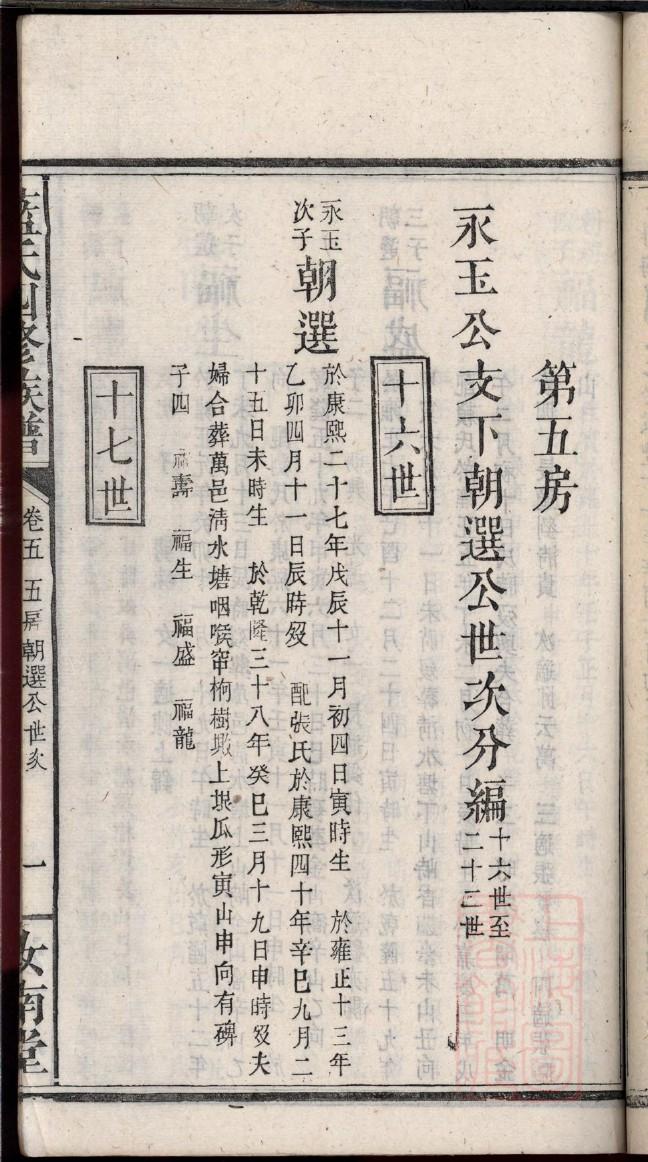 第五房
永玉公支下朝選公世次分編十六世至二十三世
十六世
永玉次子朝選
於康熙二十七年戊辰十一月初四日寅時生　於雍正十三年
乙卯四月十一日辰時歿　配張氏於康熙四十年辛巳九月二
十五日未時生　於乾隆三十八年癸巳三月十九日申時歿夫
婦合葬萬邑淸水塘咽喉窄栒樹塅上垠瓜形寅山申向有碑
子四　福壽　福生　福盛　福龍
十七世
藍氏四修族譜
卷五　五房朝選公世次
一
汝南堂